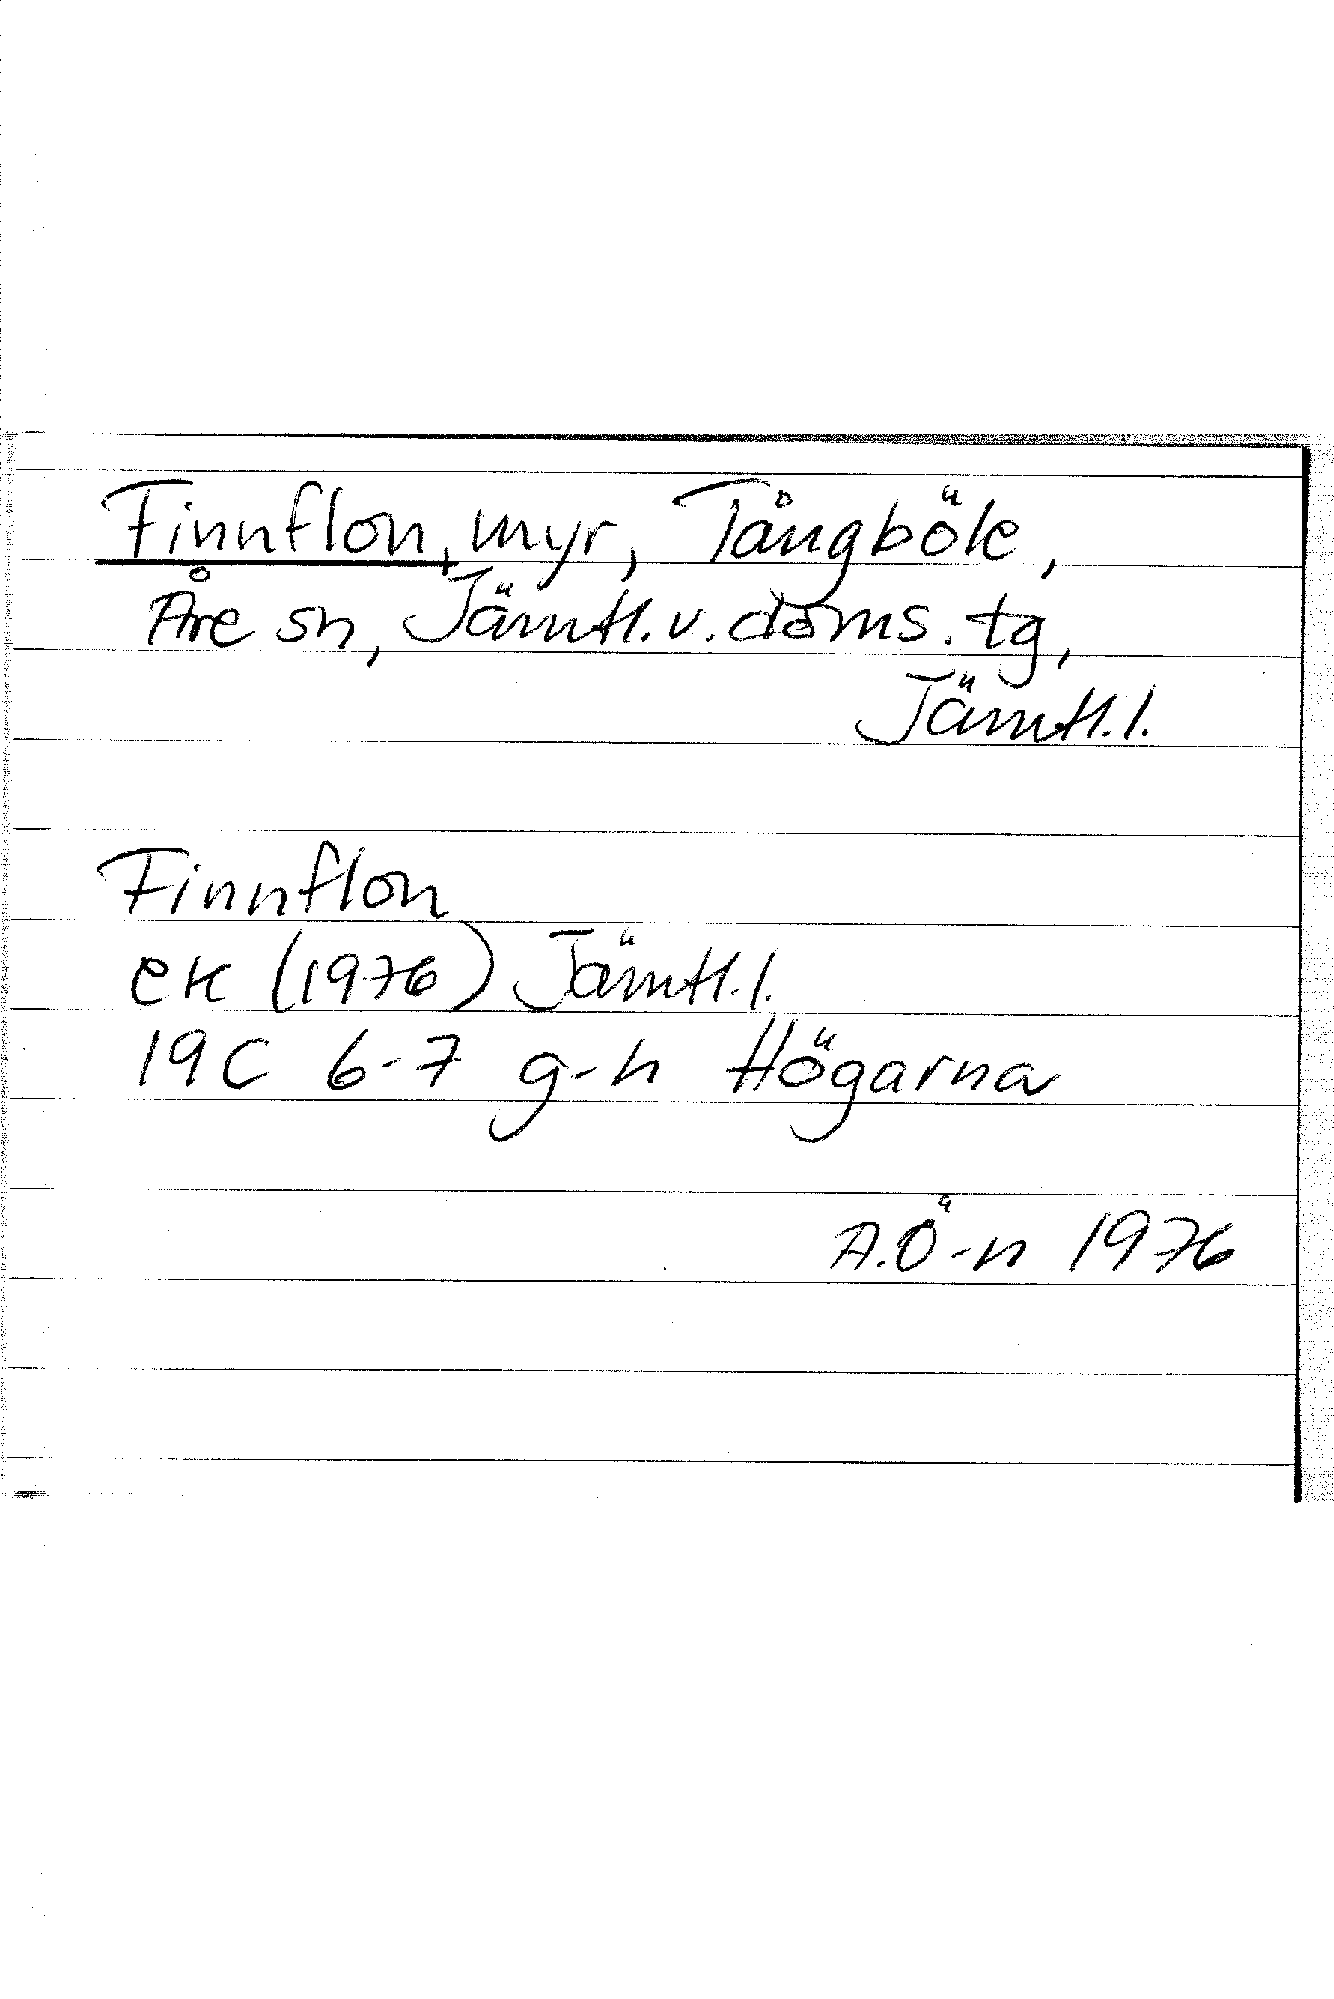 Finnflon, myr, Tångböle,
Åre sn, Jämtl. v. doms. tg,
Jämtl. l.
Finnflon
ek (1976) Jämtl. l.
19C 6-7 g-h Högarna
A.Ö-n 1976